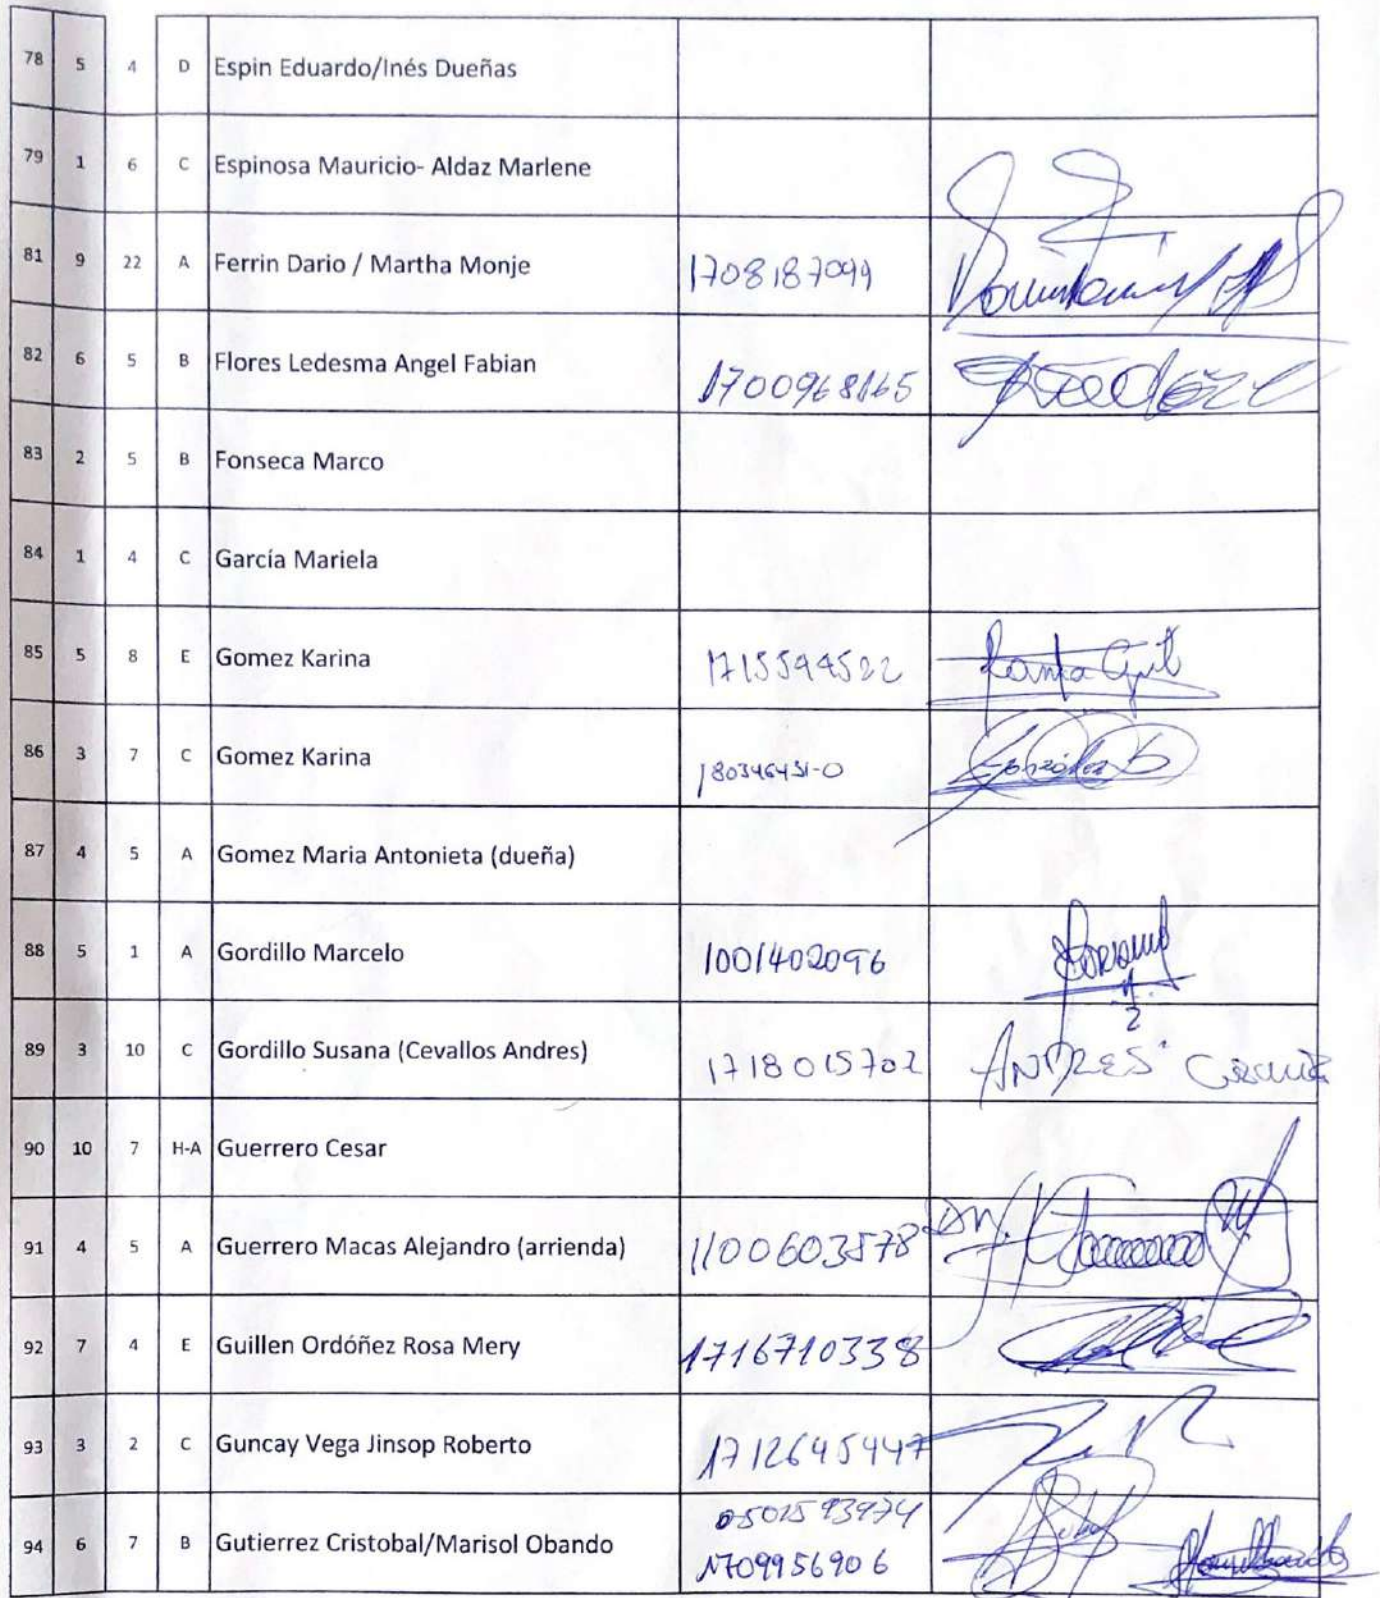 78 5 4 D Espin Eduardo/Inés Dueñas
79 1 6 C Espinosa Mauricio- Aldaz Marlene
81 9 22 A Ferrin Dario / Martha Monje 1708187099
82 6 5 B Flores Ledesma Angel Fabian 1700968165
83 2 5 B Fonseca Marco
84 1 4 C García Mariela
85 5 8 E Gomez Karina 1715594522
86 3 7 C Gomez Karina 180346451-0
87 4 5 A Gomez Maria Antonieta (dueña)
88 5 1 A Gordillo Marcelo 1001402096
89 3 10 C Gordillo Susana (Cevallos Andres) 1718015702 ANDRES
90 10 7 H-A Guerrero Cesar
91 4 5 A Guerrero Macas Alejandro (arrienda) 1100603578
92 7 4 E Guillen Ordóñez Rosa Mery 1716710338
93 3 2 C Guncay Vega Jinsop Roberto 1712645447
0501593974
94 6 7 B Gutierrez Cristobal/Marisol Obando 1709956906